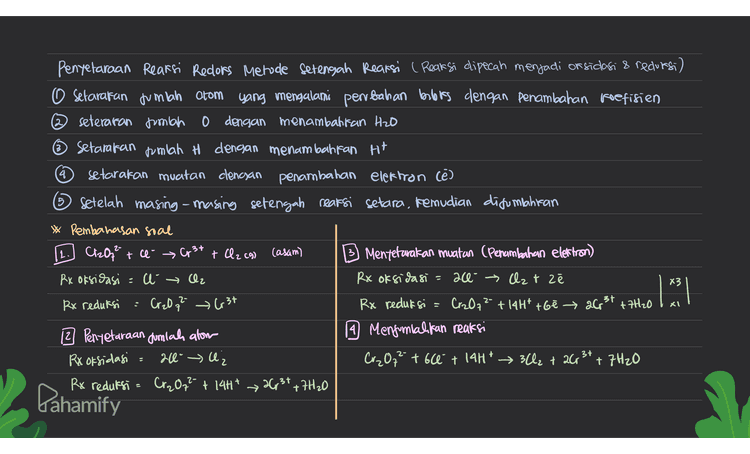 Penyetaraan Reaksi Redoks Metode Setengah Reaksi (Reaksi dipecah menjadi oksidasi & reduksi)
① Setarakan jumlah atom yang mengalami perubahan biloks dengan penambahan koefisien
② setarakan jumlah O dengan menambahkan H₂O
③ Setarakan jumlah H dengan menambahkan H⁺
④ setarakan muatan dengan penambahan elektron (ē)
⑤ Setelah masing-masing setengah reaksi setara, kemudian dijumlahkan
※ Pembahasan soal
1. Cr₂O₇²⁻ + Cl⁻ → Cr³⁺ + Cl₂ (g) (asam)
Rx oksidasi = Cl⁻ → Cl₂
Rx reduksi = Cr₂O₇²⁻ → Cr³⁺
2 Penyetaraan jumlah atom
Rx oksidasi = 2Cl⁻ → Cl₂
Rx reduksi = Cr₂O₇²⁻ + 14H⁺ → 2Cr³⁺ + 7H₂O
3 Menyetarakan muatan (Penambahan elektron)
Rx oksidasi = 2Cl⁻ → Cl₂ + 2ē | x3 |
Rx reduksi = Cr₂O₇²⁻ + 14H⁺ + 6ē → 2Cr³⁺ + 7H₂O | x1 |
4 Menjumlahkan reaksi
Cr₂O₇²⁻ + 6Cl⁻ + 14H⁺ → 3Cl₂ + 2Cr³⁺ + 7H₂O
Pahamify